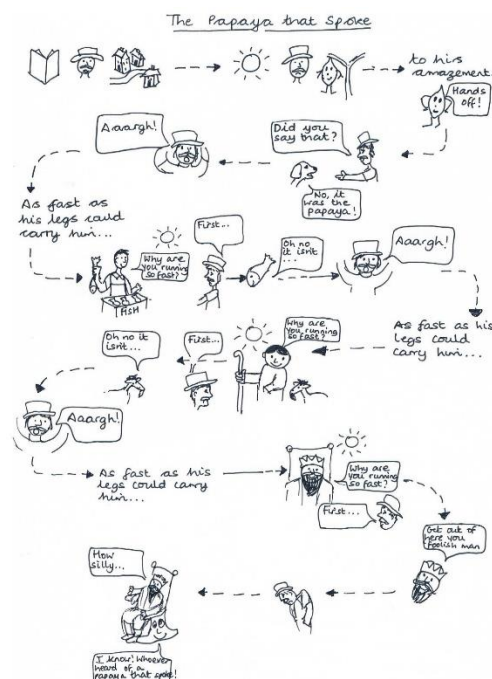 The Papaya that Spoke
to his
amazement
Hands
off!
Aaaargh!
Did you
say that?
No, it
was the
papaya!
As fast as
his legs could
carry him...
Why are
you running
so fast?
FISH
First...
Oh no
it isn't
...
Aaargh!
As fast as his
legs could
carry him...
Why are
you running
so fast?
First...
Oh no it
isn't...
Aaargh!
As fast as his
legs could carry
him...
Why are
you running
so fast?
First...
Get out of
here you
foolish man
How
silly...
I know! Whoever
heard of a
papaya that spoke!